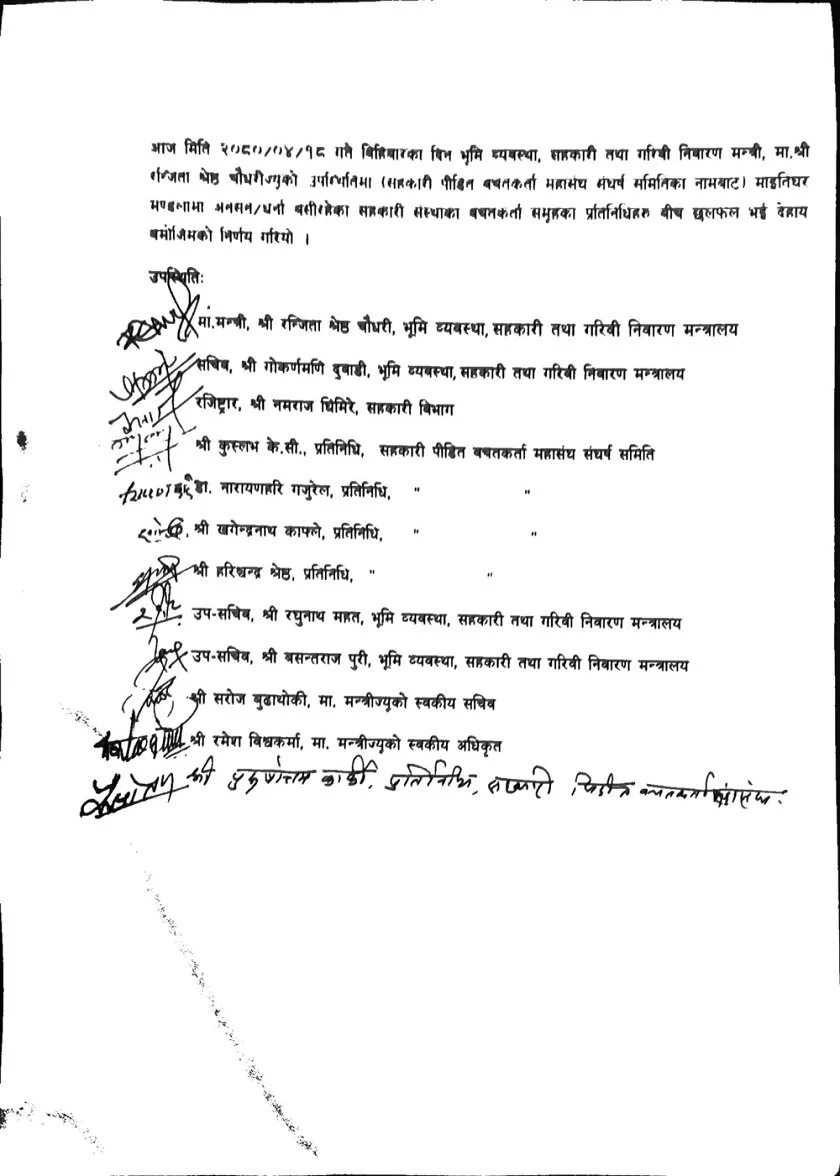 आज मिति २०८०/०४/१८ गते बिहिबारका दिन भूमि व्यवस्था, सहकारी तथा गरिवी निवारण मन्त्री, मा.श्री
रन्जिता श्रेष्ठ चौधरीज्यूको उपस्थितिमा (सहकारी पीडित बचतकर्ता महासंघ संघर्ष समितिका नामबाट) माइतिघर
मण्डलामा अनसन/धर्ना बसीरहेका सहकारी संस्थाका बचतकर्ता समूहका प्रतिनिधिहरु बीच छलफल भई देहाय
बमोजिमको निर्णय गरियो ।
उपस्थितिः
मा.मन्त्री, श्री रन्जिता श्रेष्ठ चौधरी, भूमि व्यवस्था, सहकारी तथा गरिवी निवारण मन्त्रालय
सचिव, श्री गोकर्णमणि दुवाडी, भूमि व्यवस्था, सहकारी तथा गरिवी निवारण मन्त्रालय
रजिष्ट्रार, श्री नमराज घिमिरे, सहकारी विभाग
श्री कुस्लभ के.सी., प्रतिनिधि, सहकारी पीडित बचतकर्ता महासंघ संघर्ष समिति
डा. नारायणहरि गजुरेल, प्रतिनिधि, " "
श्री खगेन्द्रनाथ काफ्ले, प्रतिनिधि, " "
श्री हरिश्चन्द्र श्रेष्ठ, प्रतिनिधि, " "
उप-सचिव, श्री रघुनाथ महत, भूमि व्यवस्था, सहकारी तथा गरिवी निवारण मन्त्रालय
उप-सचिव, श्री बसन्तराज पुरी, भूमि व्यवस्था, सहकारी तथा गरिवी निवारण मन्त्रालय
श्री सरोज बुढाथोकी, मा. मन्त्रीज्यूको स्वकीय सचिव
श्री रमेश विश्वकर्मा, मा. मन्त्रीज्यूको स्वकीय अधिकृत
श्री पुरुषोत्तम कार्की, प्रतिनिधि, सहकारी पिडीत बचतकर्ता महासंघ.